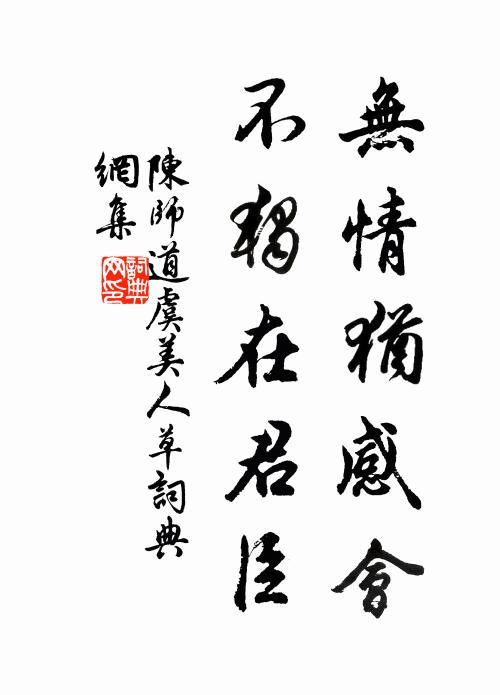 無情猶感會
不獨在君臣
陳師道虞美人草詞典
網集
詞典網印